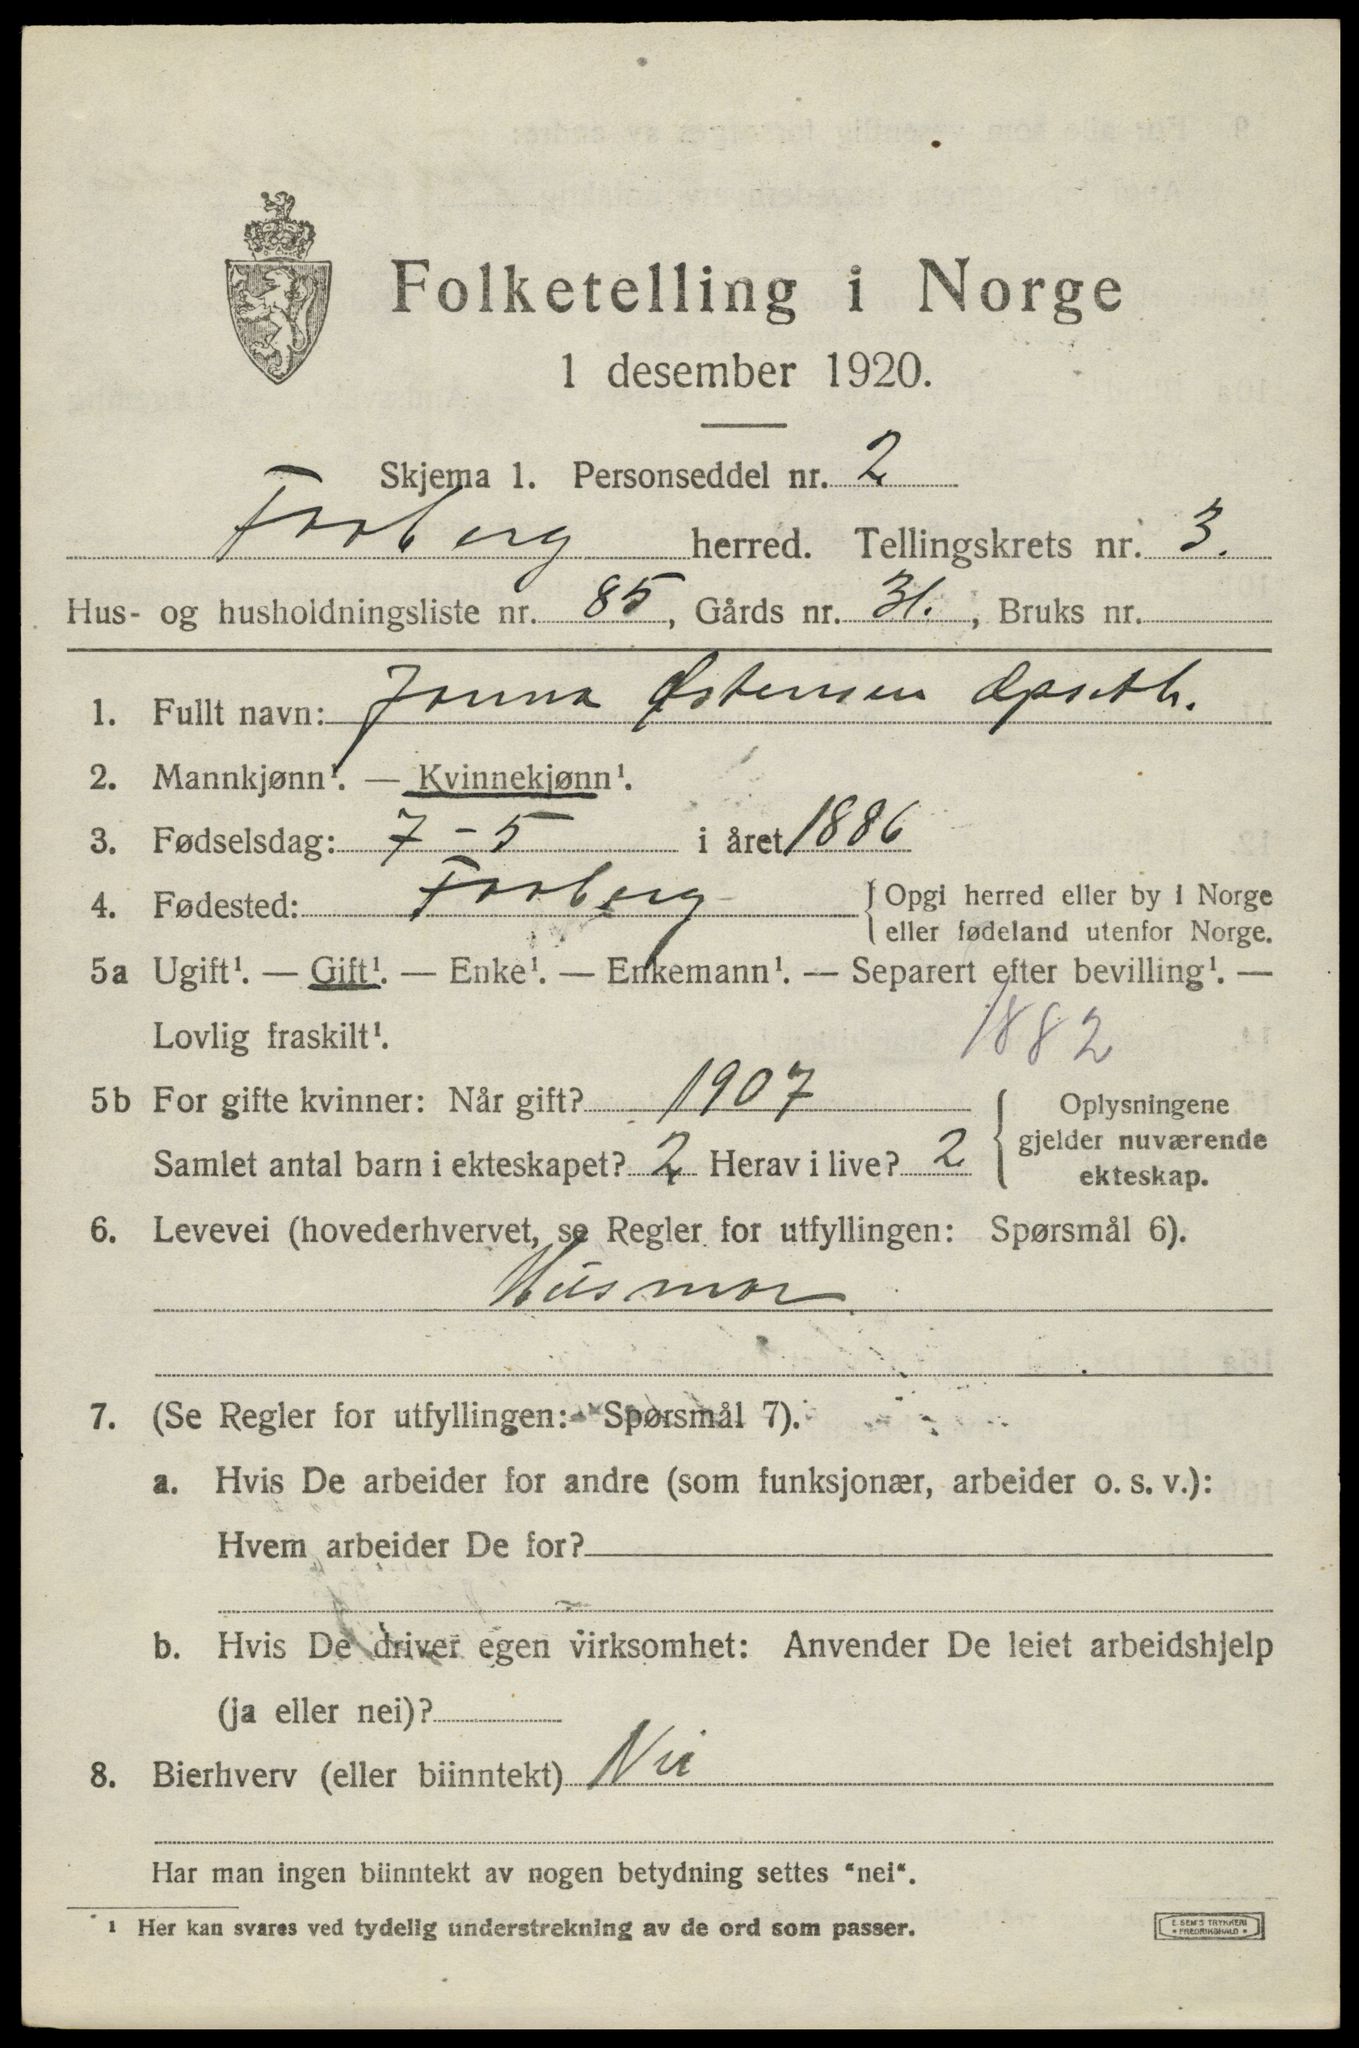 Folketelling i Norge
1 desember 1920.
Skjema 1. Personseddel nr. 2
Faaberg herred. Tellingskrets nr. 3.
Hus- og husholdningsliste nr. 85, Gårds nr. 31., Bruks nr.
1. Fullt navn: Janna Østensen Opseth.
2. Mannkjønn¹. — Kvinnekjønn¹.
3. Fødselsdag: 7-5 i året 1886
4. Fødested: Faaberg { Opgi herred eller by i Norge
eller fødeland utenfor Norge.
5a Ugift¹. — Gift¹. — Enke¹. — Enkemann¹. — Separert efter bevilling¹. —
Lovlig fraskilt¹. 1882
5b For gifte kvinner: Når gift? 1907 { Oplysningene
gjelder nuværende
Samlet antal barn i ekteskapet? 2 Herav i live? 2 ekteskap.
6. Levevei (hovederhvervet, se Regler for utfyllingen: Spørsmål 6).
Husmor
7. (Se Regler for utfyllingen: Spørsmål 7).
a. Hvis De arbeider for andre (som funksjonær, arbeider o. s. v.):
Hvem arbeider De for?
b. Hvis De driver egen virksomhet: Anvender De leiet arbeidshjelp
(ja eller nei)?
8. Bierhverv (eller biinntekt) Nei
Har man ingen biinntekt av nogen betydning settes "nei".
¹ Her kan svares ved tydelig understrekning av de ord som passer.
E. SEM'S TRYKKERI
FREDRIKSHALD